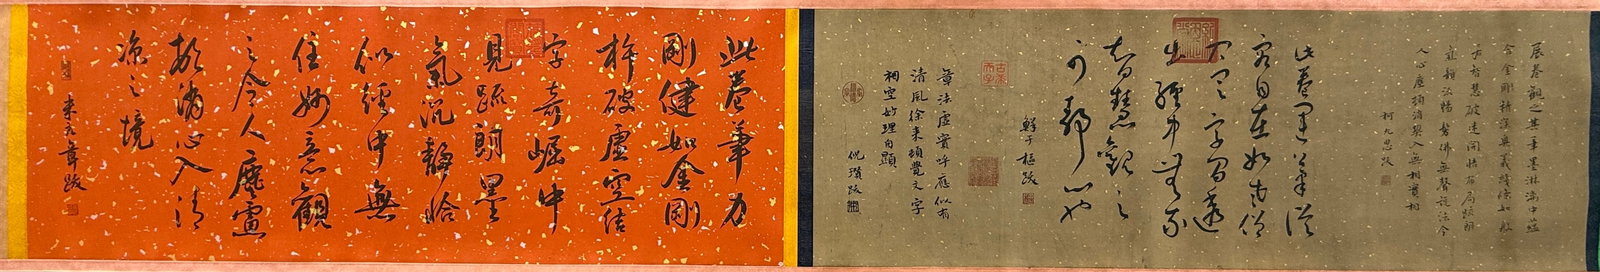 展卷觀之其筆墨淋漓中蘊
含金剛精深奧義綫條如般
若智慧破迷開悟布局疏朗
暢仿佛無聲說法令
人心塵頓消契入無相實相
柯九思跋
此卷運筆從
容自在如高僧
入定字間透
出經中無我
智慧觀之
可靜心也
鮮于樞跋
章法虛實呼應似有
清風徐來頓覺文字
相空妙理自顯
倪瓚跋
此卷筆力
剛健如金剛
杵破虛空結
字奇崛中
見疏朗墨
氣沉靜恰
似經中無
住妙意觀
之令人塵慮
頓消心入清
涼之境
米元章跋